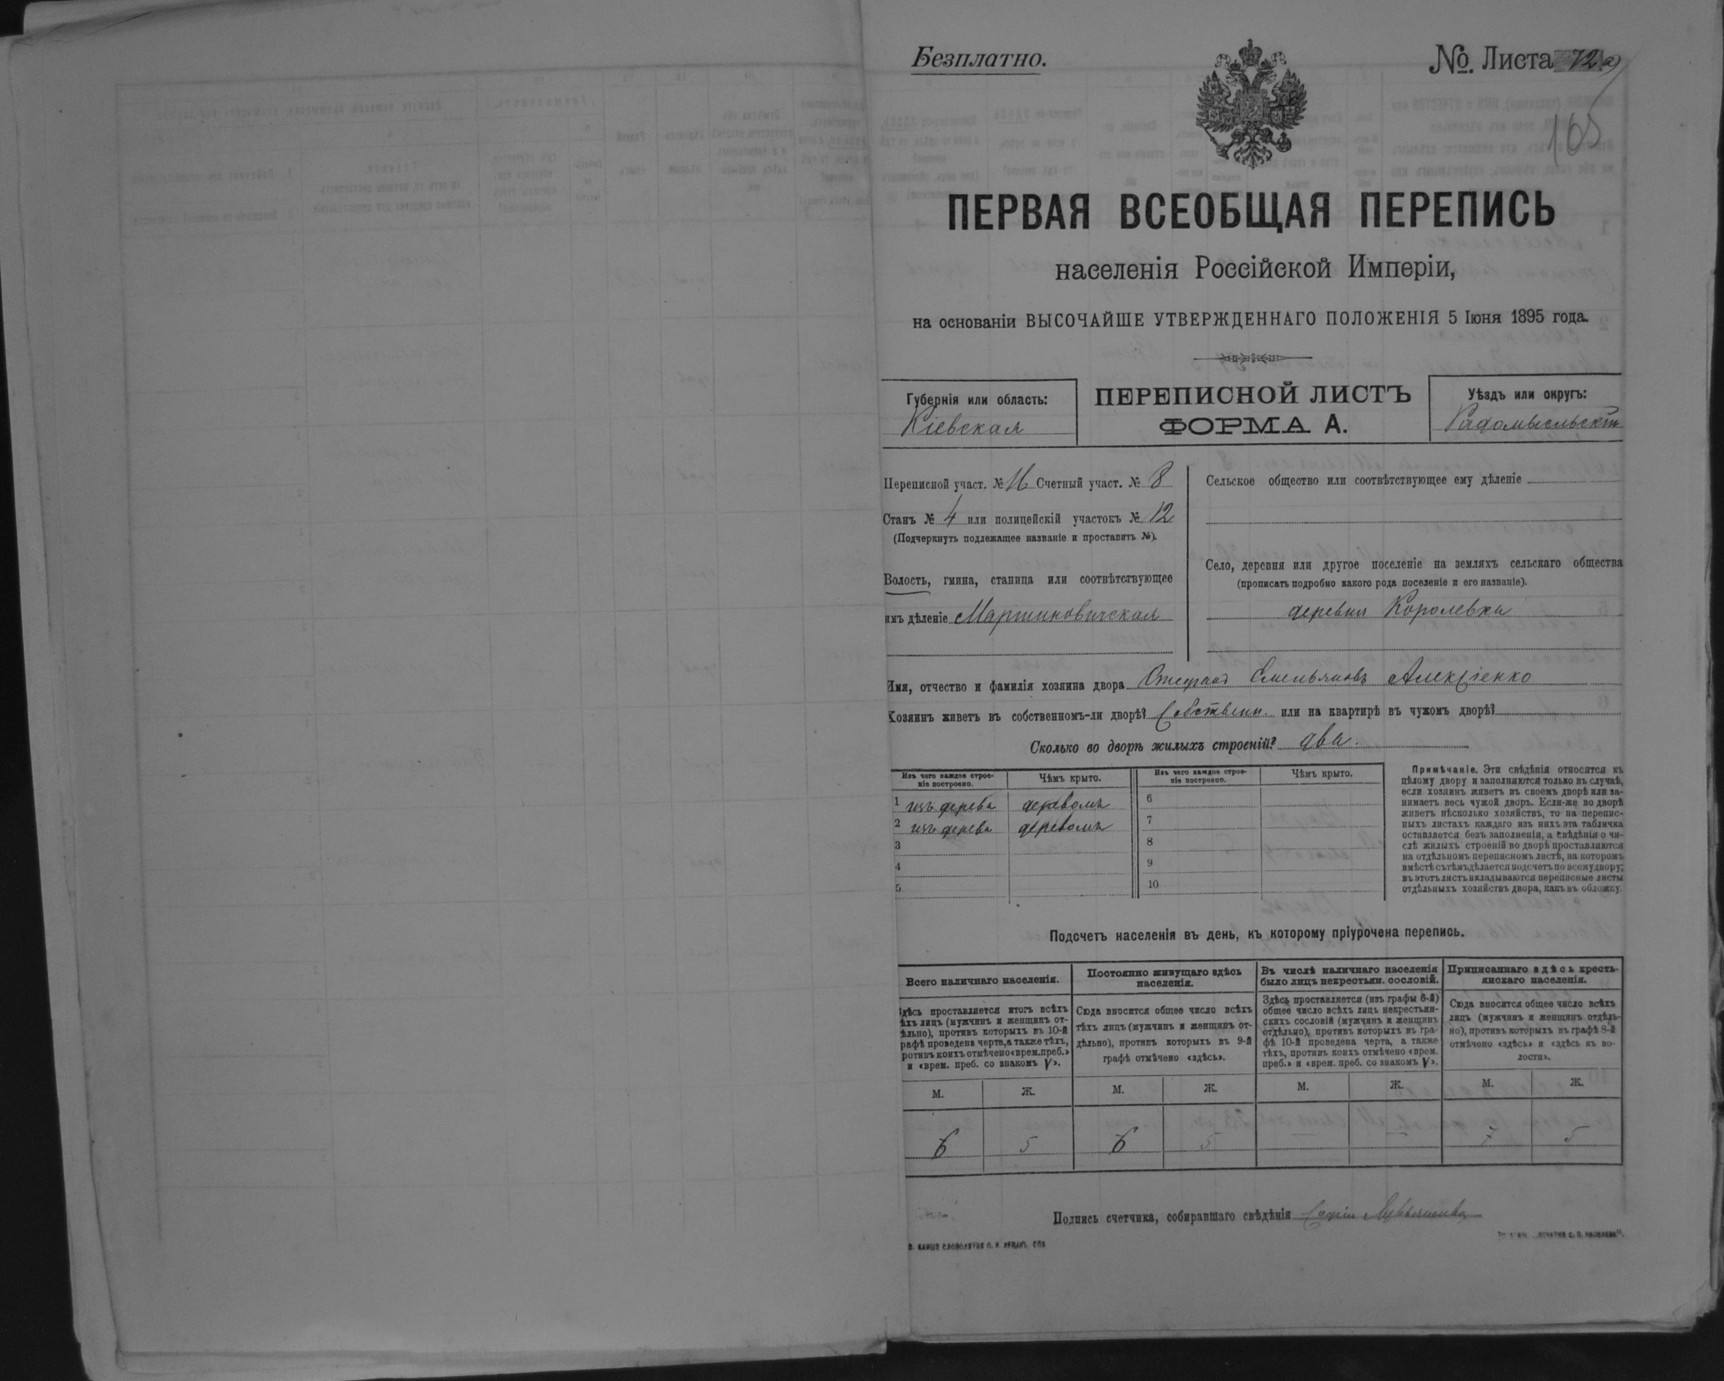 Безплатно.
№ Листа 72а
165
ПЕРВАЯ ВСЕОБЩАЯ ПЕРЕПИСЬ
населенія Россійской Имперіи,
на основаніи ВЫСОЧАЙШЕ УТВЕРЖДЕННАГО ПОЛОЖЕНІЯ 5 Іюня 1895 года.
Губернія или область:
Кіевская
ПЕРЕПИСНОЙ ЛИСТЪ
ФОРМА А.
Уѣздъ или округъ:
Радомысльскій
Переписной участ. № 16 Счетный участ. № 8
Станъ № 4 или полицейскій участокъ № 12
(Подчеркнуть подлежащее названіе и проставить №).
Волость, гмина, станица или соотвѣтствующее
имъ дѣленіе Мартиновичская
Сельское общество или соотвѣтствующее ему дѣленіе
Село, деревня или другое поселеніе на земляхъ сельскаго общества
(прописать подробно какого рода поселеніе и его названіе).
деревня Королевка
Имя, отчество и фамилія хозяина двора Стефанъ Емельяновъ Алексіенко
Хозяинъ живетъ въ собственномъ-ли дворѣ? Собствен. или на квартирѣ въ чужомъ дворѣ?
Сколько во дворѣ жилыхъ строеній? два.
Изъ чего каждое строе-
ніе построено.
Чѣмъ крыто.
Изъ чего каждое строе-
ніе построено.
Чѣмъ крыто.
1 изъ дерева деревомъ 6
2 изъ дерева деревомъ 7
3 8
4 9
5 10
Примѣчаніе. Эти свѣдѣнія относятся къ
цѣлому двору и заполняются только въ случаѣ,
если хозяинъ живетъ въ своемъ дворѣ или за-
нимаетъ весь чужой дворъ. Если-же во дворѣ
живетъ нѣсколько хозяйствъ, то на перепис-
ныхъ листахъ каждаго изъ нихъ эта табличка
оставляется безъ заполненія, а свѣдѣнія о чи-
слѣ жилыхъ строеній во дворѣ проставляются
на отдѣльномъ переписномъ листѣ, на которомъ
вмѣстѣ съ тѣмъ дѣлается подсчетъ по всему двору;
въ этотъ листъ вкладываются переписные листы
отдѣльныхъ хозяйствъ двора, какъ въ обложку.
Подсчетъ населенія въ день, къ которому пріурочена перепись.
Всего наличнаго населенія.
Здѣсь проставляется итогъ всѣхъ
тѣхъ лицъ (мужчинъ и женщинъ от-
дѣльно), противъ которыхъ въ 10-й
графѣ проведена черта, а также тѣхъ,
противъ коихъ отмѣчено «врем. преб.»
и «врем. преб. со знакомъ V».
Постоянно живущаго здѣсь
населенія.
Сюда вносится общее число всѣхъ
тѣхъ лицъ (мужчинъ и женщинъ от-
дѣльно), противъ которыхъ въ 9-й
графѣ отмѣчено «здѣсь».
Въ числѣ наличнаго населенія
было лицъ некрестьян. сословій.
Здѣсь проставляется (изъ графы 6-й)
общее число всѣхъ лицъ некрестьян-
скихъ сословій (мужчинъ и женщинъ
отдѣльно), противъ которыхъ въ гра-
фѣ 10-й проведена черта, а также
тѣхъ, противъ коихъ отмѣчено «врем.
преб.» и «врем. преб. со знакомъ V».
Приписаннаго здѣсь кресть-
янскаго населенія.
Сюда вносится общее число всѣхъ
лицъ (мужчинъ и женщинъ отдѣль-
но), противъ которыхъ въ графѣ 8-й
отмѣчено «здѣсь» и «здѣсь къ во-
лости».
М. Ж. М. Ж. М. Ж. М. Ж.
6 5 6 5 — — 7 5
Подпись счетчика, собиравшаго свѣдѣнія